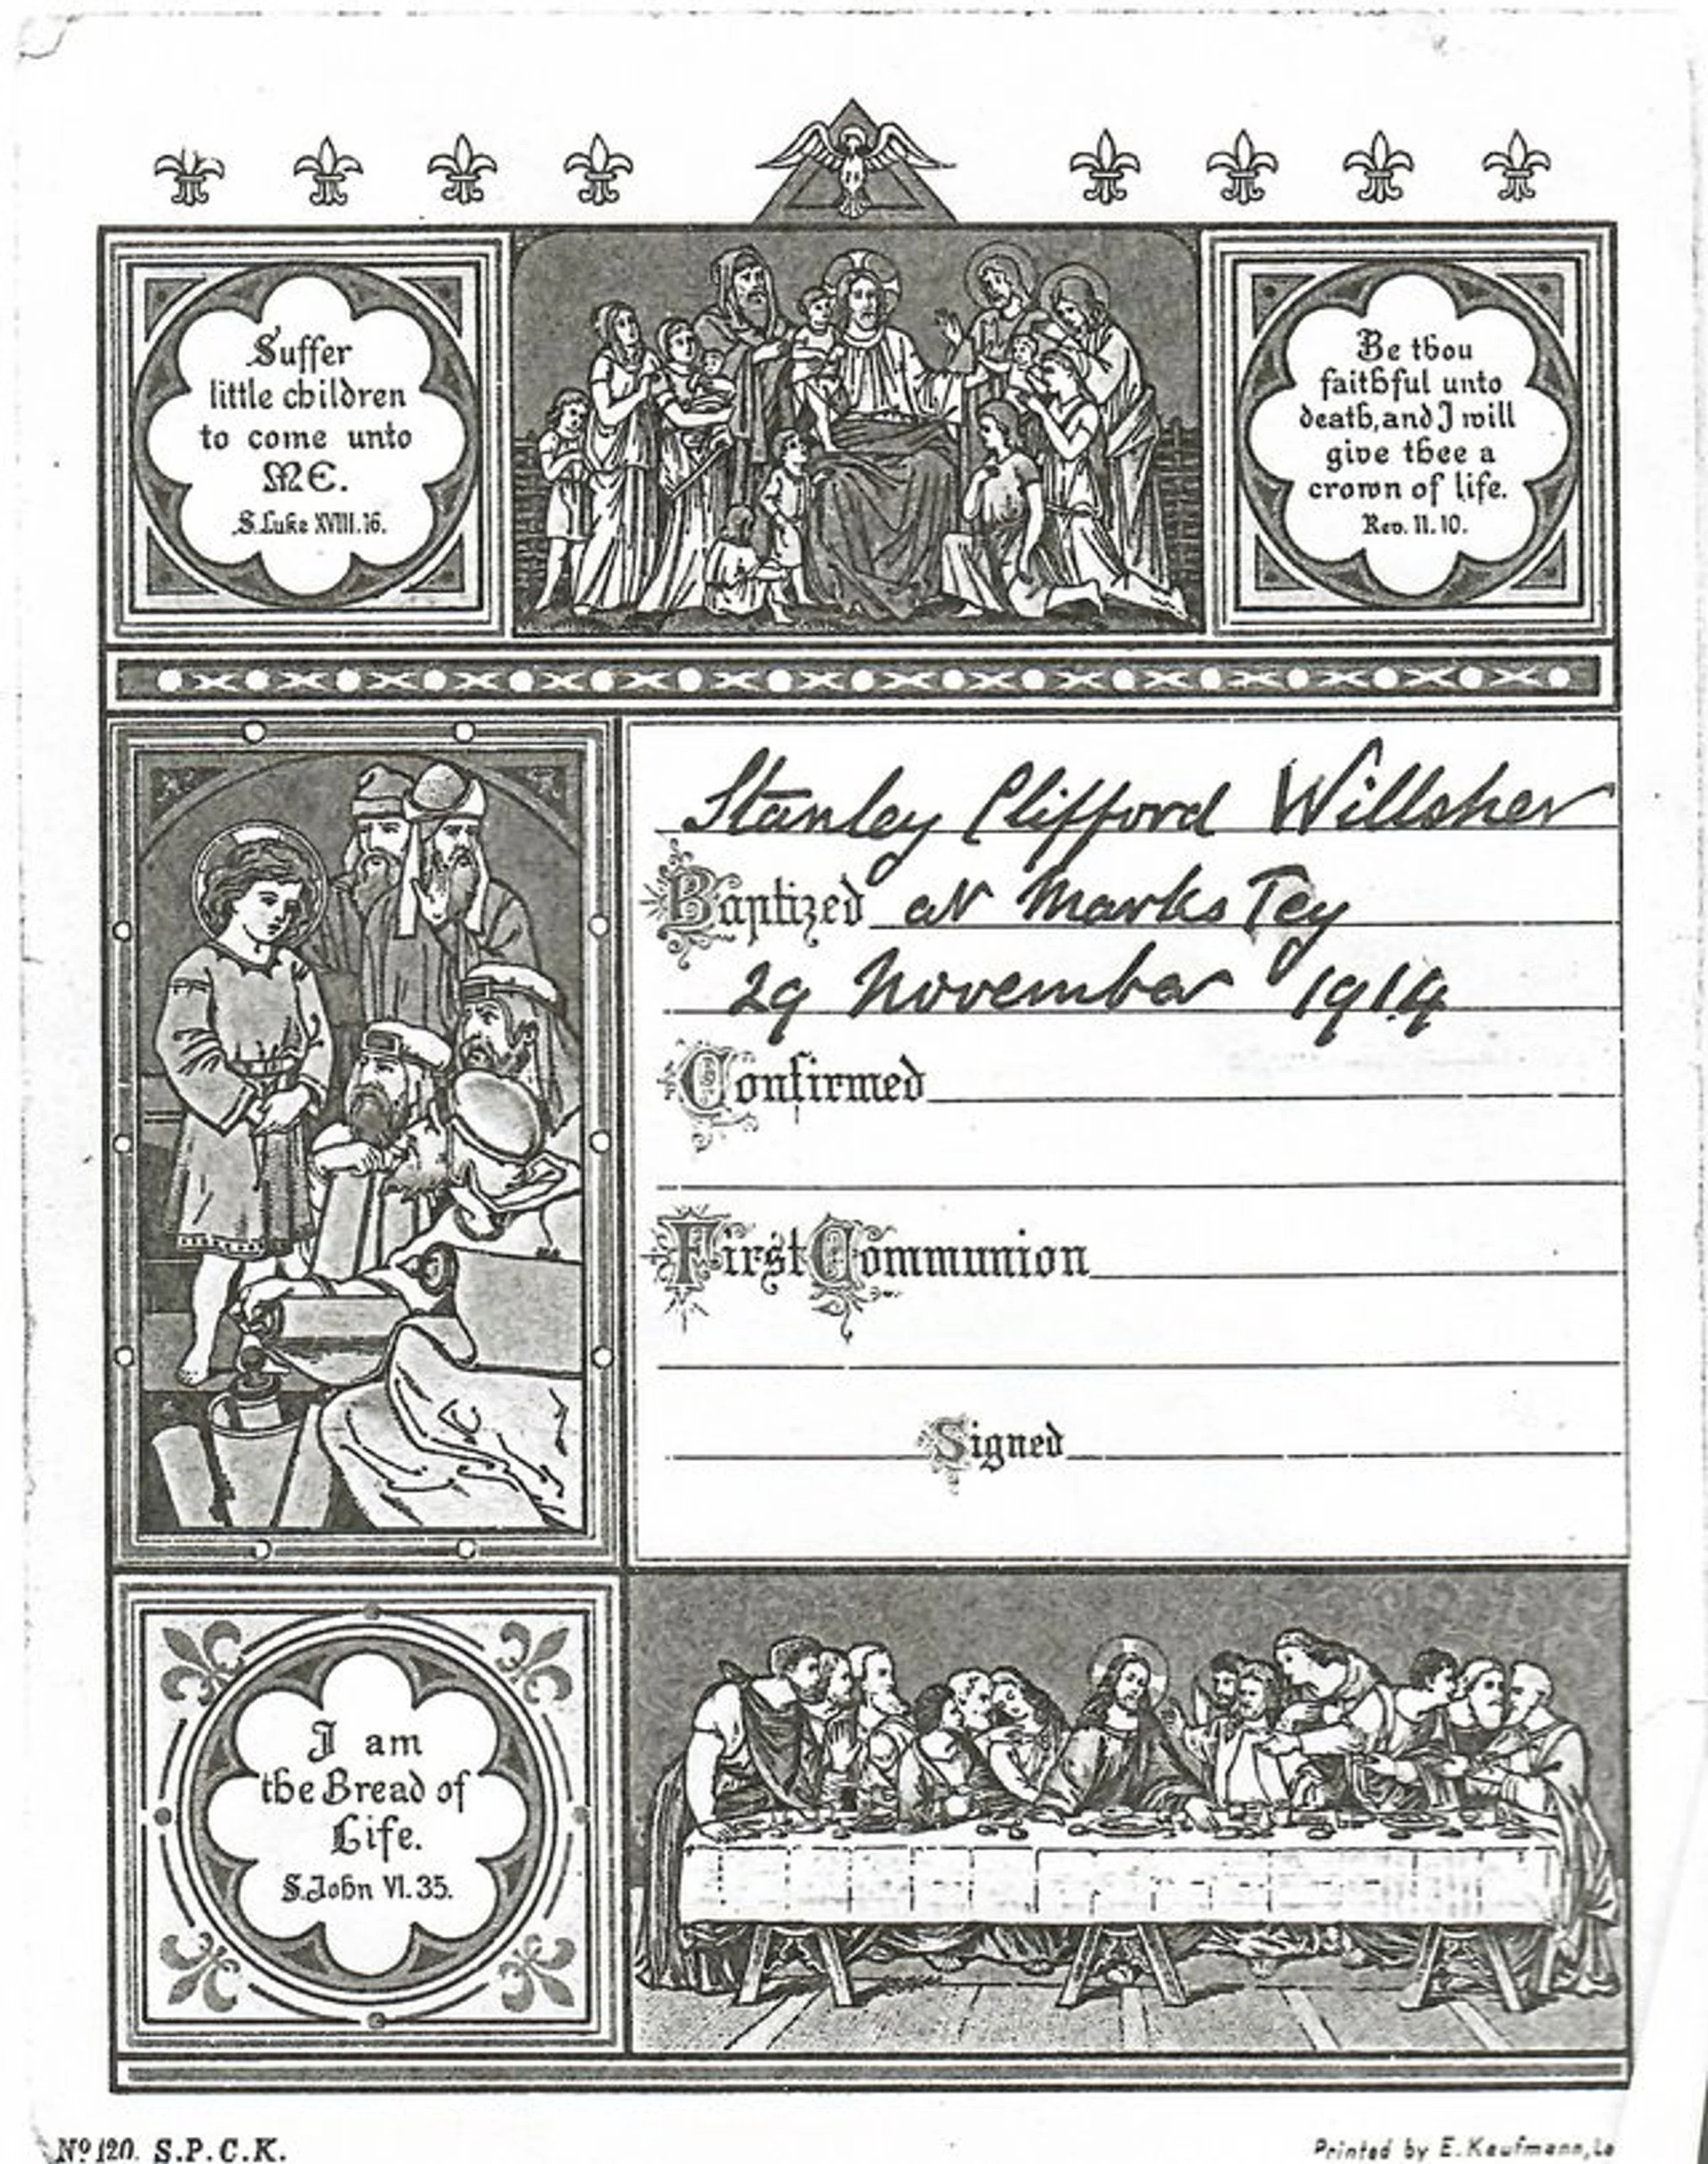 Suffer
little children
to come unto
ME.
S. Luke XVIII. 16.
Be thou
faithful unto
death, and I will
give thee a
crown of life.
Rev. II. 10.
Stanley Clifford Willsher
Baptized at Marks Tey
29 November 1914
Confirmed
First Communion
Signed
I am
the Bread of
Life.
S. John VI. 35.
Nº 120. S.P.C.K.
Printed by E. Kaufmann, Lo